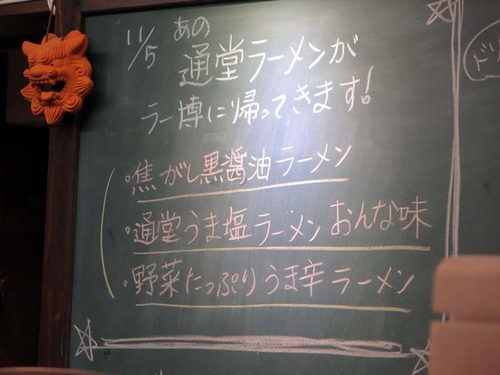 11/5 あの
通堂ラーメンが
ラー博に帰ってきます!
・焦がし黒醤油ラーメン
・通堂うま塩ラーメンおんな味
・野菜たっぷりうま辛ラーメン